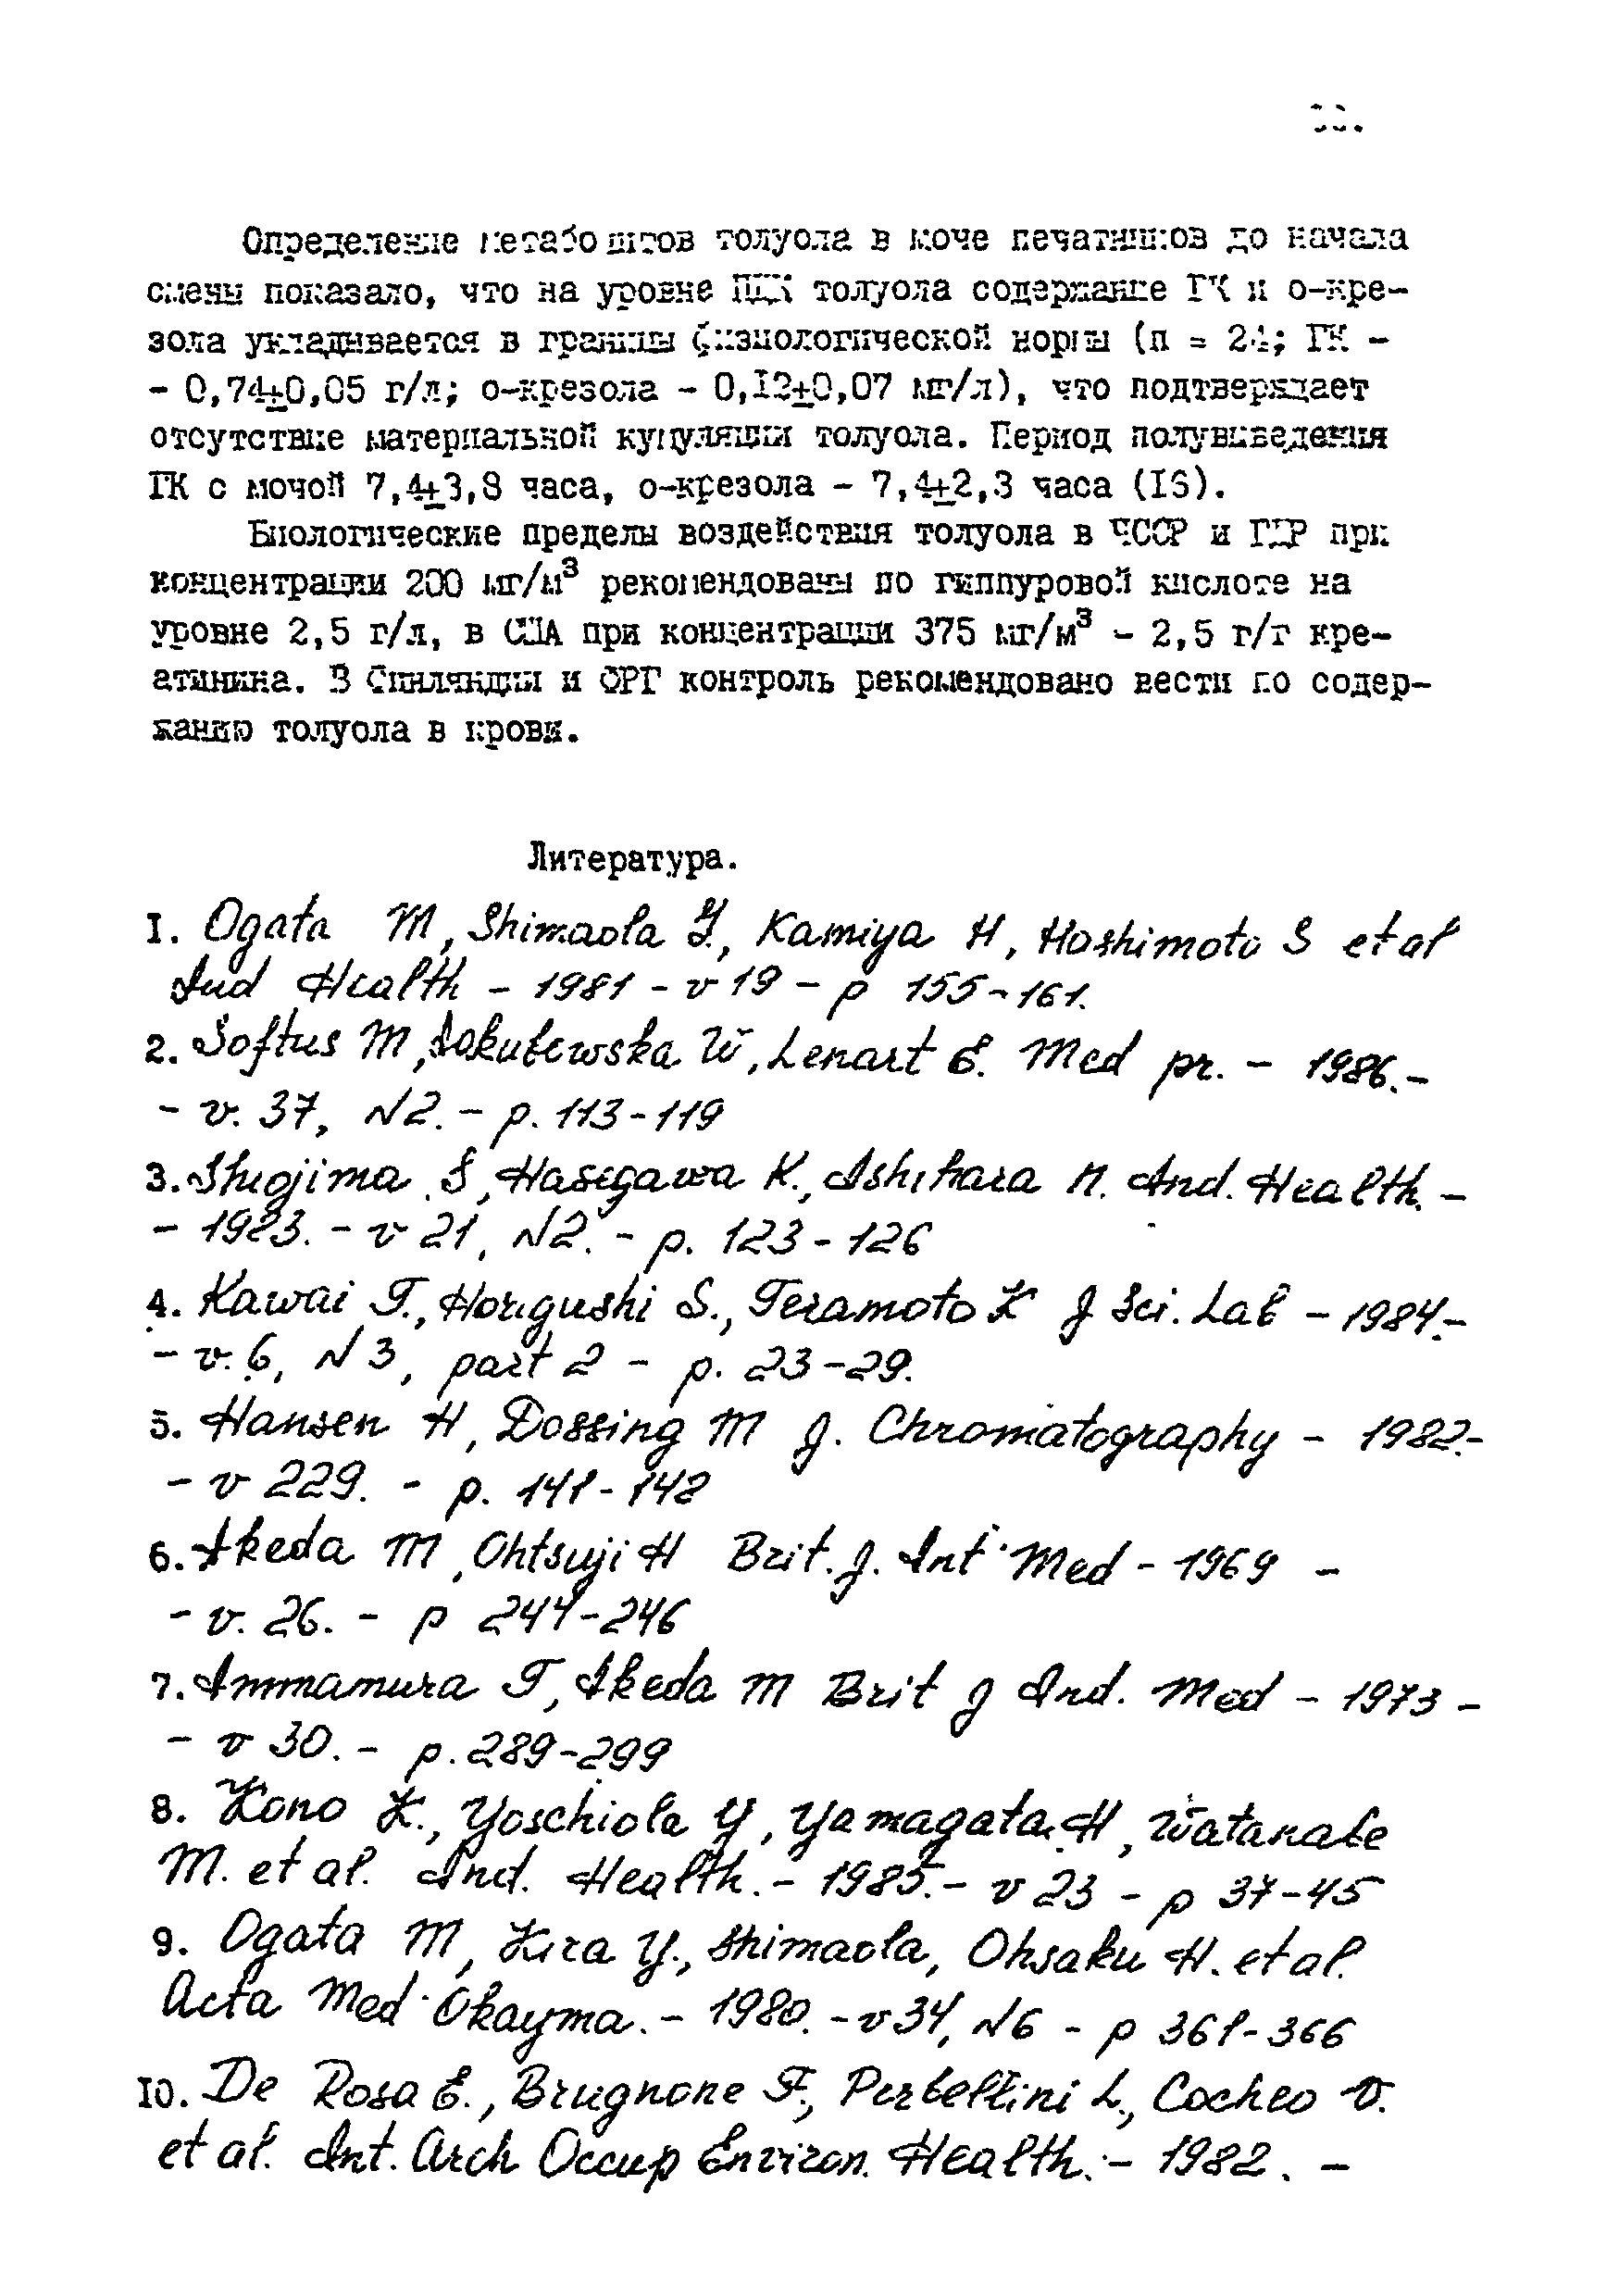 Определение метаболитов толуола в моче печатников до начала
смены показало, что на уровне ПДК толуола содержание ГК и о-кре-
зола укладывается в границы физиологической нормы (п = 24; ГК -
- 0,74±0,05 г/л; о-крезола - 0,12±0,07 мг/л), что подтверждает
отсутствие материальной кумуляции толуола. Период полувыведения
ГК с мочой 7,4±3,8 часа, о-крезола - 7,4±2,3 часа (16).
Биологические пределы воздействия толуола в ЧССР и ГДР при
концентрации 200 мг/м³ рекомендованы по гиппуровой кислоте на
уровне 2,5 г/л, в США при концентрации 375 мг/м³ - 2,5 г/г кре-
атинина. В Финляндии и ФРГ контроль рекомендовано вести по содер-
жанию толуола в крови.
Литература.
1. Ogata M, Shimaola Y., Kamiya H, Hoshimoto S et al
Ind Health - 1981 - v 19 - p 155-161.
2. Softus M, Sokulewska W, Lenart E. Med pr. - 1986.-
- v. 37, N2. - p. 113-119
3. Shiojima S, Hasegawa K., Ishihara N. Ind. Health -
- 1983. - v 21, N2. - p. 123-126
4. Kawai T., Horigushi S., Teramoto K J Sci. Lab - 1984.-
- v. 6, N 3, part 2 - p. 23-29.
5. Hansen H, Dossing M J. Chromatography - 1982.-
- v 229. - p. 141-148
6. Ikeda M, Ohtsuji H Brit. J. Int Med - 1969 -
- v. 26. - p 244-246
7. Immamura T, Ikeda M Brit J Ind. Med - 1973 -
- v 30. - p. 289-299
8. Kono K., Yoschiola Y, Yamagata H, Watanabe
M. et al. Ind. Health. - 1985. - v 23 - p 37-45
9. Ogata M, Kira Y., Shimaola, Ohsaku H. et al.
Acta Med Okayma. - 1980. - v 34, N6 - p 361-366
10. De Rosa E., Brugnone F., Perbellini L., Cocheo V.
et al. Int. Arch Occup Environ. Health. - 1982. -